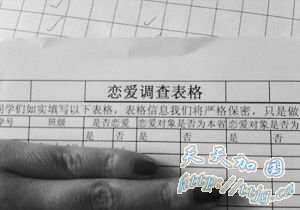 恋爱调查表格
同学们如实填写以下表格，表格信息我们将严格保密，只是做
学号 班级 是否恋爱 恋爱对象是否为本省 恋爱对象是否为
是 否 是 否 是 否
天天加国
http://ttjg.cn